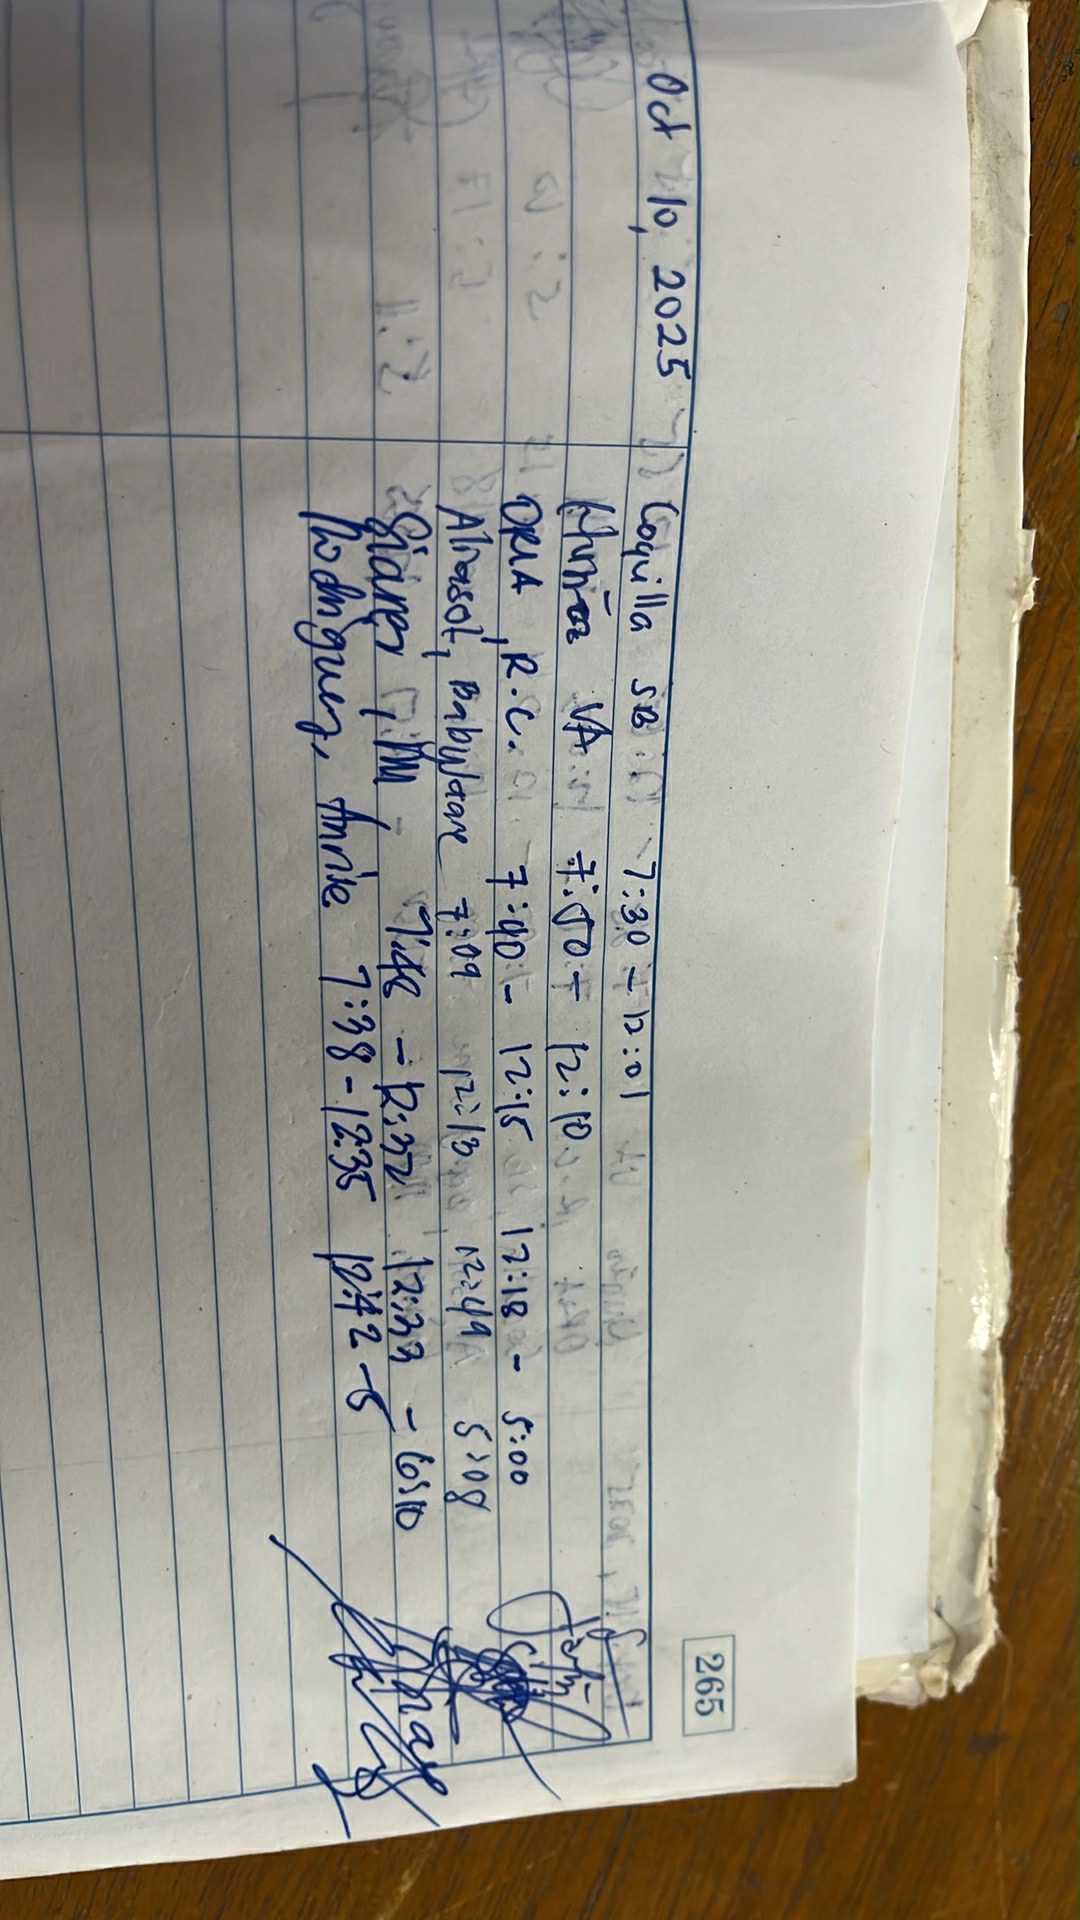 265
Oct 10, 2025 Coquilla SB 7:30 - 12:01
VA 7:50 - 12:10
ORIA, R.C. 7:40 - 12:15 12:18 - 5:00
Alrasol, Babylane 7:09 12:13 12:49 5:08
M 7:48 - 12:32 12:33 - 6:10
Rodriguez, Annie 7:38 - 12:35 12:42 - 5